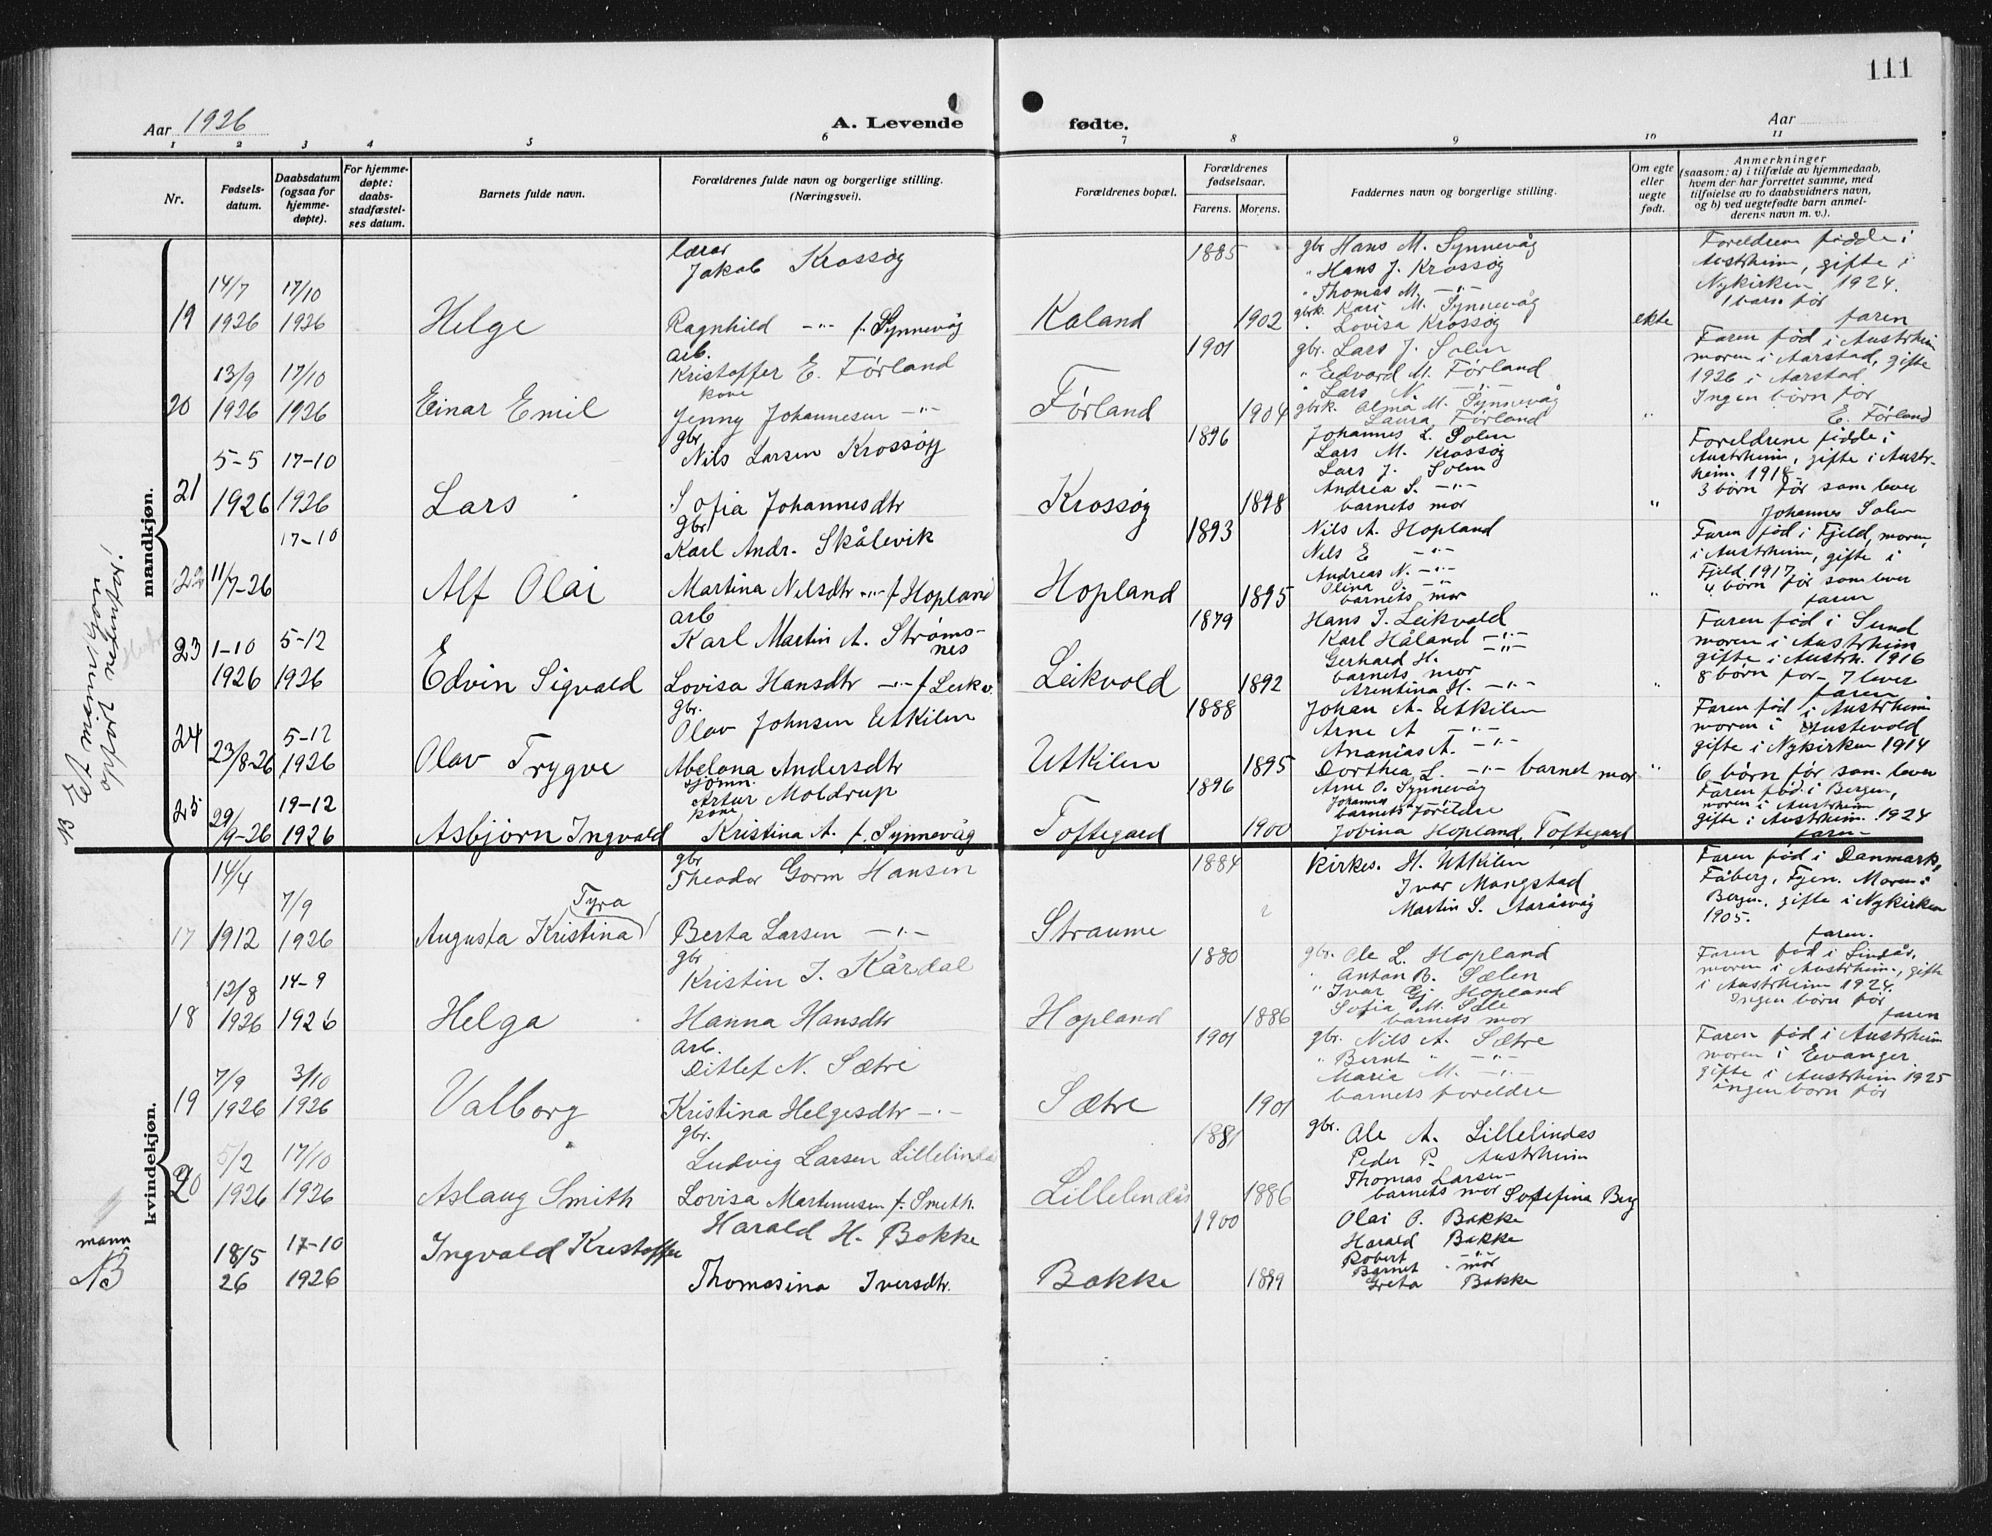 111
Aar 1926
A. Levende
fødte.
Aar
1 2 3 4 5 6 7 8 9 10 11
Nr.
Fødsels-
datum.
Daabsdatum
(ogsaa for
hjemme-
døpte).
For hjemme-
døpte:
daabs-
stadfæstel-
ses datum.
Barnets fulde navn.
Forældrenes fulde navn og borgerlige stilling.
(Næringsvei).
Forældrenes bopæl.
Forældrenes
fødselsaar.
Farens. Morens.
Faddernes navn og borgerlige stilling.
Om egte
eller
uegte
født.
Anmerkninger
(saasom: a) i tilfælde av hjemmedaab,
hvem der har forrettet samme, med
tilføielse av to daabsvidners navn,
og b) ved uegtefødte barn anmel-
derens navn m. v.).
mandkjøn.
19
14/7
1926
17/10
1926
Helge
lærar
Jakob Krossøy
Ragnhild -"- f. Synnevåg
Kaland
1885
1902
gbr Hans M. Synnevåg
" Hans J. Krossøy
" Thomas M. -"-
gbrk. Kari M. Synnevåg
" Lovisa Krossøy
ekte
Foreldrene fødde i
Austrheim, gifte i
Nykirken 1924.
1 barn før
faren
20
13/9
1926
17/10
1926
Einar Emil
arb.
Kristoffer E. Førland
kone
Jenny Johannesen -"-
Førland
1901
1904
gbr. Lars J. Solem
" Edvard M. Førland
" Lars N. -"-
gbrk. Alma M. Synnevåg
Laura Førland
"
Faren fød i Austrheim
moren i Aarstad, gifte
1926 i Aarstad.
Ingen børn før
E. Førland
21
5-5
1926
17-10
1926
Lars
gbr
Nils Larsen Krossøy
Sofia Johannesdtr
Krossøy
1896
1898
Johannes L. Solem
Lars M. Krossøy
Lars J. Solem
Andrea S. -"-
barnets mor
"
Foreldrene fødde i
Austrheim, gifte i Austr-
heim 1918
3 børn før som lever
Johannes Solem
22
11/7-26
17-10
Alf Olai
gbr
Karl Andr. Skålevik
Martina Nilsdtr -"- f. Hopland
Hopland
1893
1895
Nils A. Hopland
Nils E -"-
Andreas N. -"-
Olina O. -"-
barnets mor
"
Faren fød i Fjeld, moren
i Austrheim, gifte i
Fjeld 1917.
4 børn før som lever
faren
23
1-10
1926
5-12
1926
Edvin Sigvald
arb
Karl Martin A. Strøms-
nes
Lovisa Hansdtr -"- f Leikv.
Leikvold
1879
1892
Hans J. Leikvold
Karl Håland -"-
Gerhard H. -"-
barnets mor
Arentina H. -"-
"
Faren fød i Sund
moren i Austrheim
gifte i Austrh. 1916
8 børn før - 7 lever
faren
24
23/8-26
5-12
1926
Olav Trygve
gbr.
Olav Johnsen Utkilen
Abelona Andersdtr
Utkilen
1888
1895
Johan A. Utkilen
Arne A -"-
Ananias A. -"-
Dorthea L. -"- barnet mor
"
Faren fød i Austrheim
moren i Austevold
gifte i Nykirken 1914
6 børn før som lever
25
29/9-26
19-12
1926
Asbjørn Ingvald
sjømn.
Artur Moldrup
kone
Kristina A. f. Synnevåg
Toftegard
1896
1900
Arne O. Synnevåg
Johannes -"-
barnets foreldre
Jovina Hopland, Toftegard
Faren fød i Bergen,
moren i Austrheim
gifte i Austrheim 1924
faren
kvindekjøn.
17
14/4
1912
7/9
1926
Tyra
Augusta Kristina
gbr
Theodor Gorm Hansen
Berta Larsen -"-
Straume
1884
kirkes. H. Utkilen
Ivar Mongstad
Martin S. Aaråsvåg
Faren fød i Danmark,
Fåberg, Fyen. Moren i
Bergen, gifte i Nykirken
1905.
faren.
18
12/8
1926
14-9
1926
Helga
gbr
Kristin J. Kårdal
Hanna Hansdtr
Hopland
1880
1886
gbr. Ole L. Hopland
" Anton B. Sælen
" Ivar Gj. Hopland
Sofia M. Sele
barnets mor
Faren fød i Lindås,
moren i Austrheim, gifte
i Austrheim 1924.
Ingen børn før
faren
19
7/9
1926
3/10
1926
Valborg
arb.
Ditlef N. Sætre
Kristina Helgesdtr -"-
Sætre
1901
1901
gbr. Nils A. Sætre
" Bernt " -"-
Marie M. -"-
barnets foreldre
Faren fød i Austrheim
moren i Evanger
gifte i Austrheim 1925
ingen børn før
20
5/2
1926
17/10
1926
Aslaug Smith
gbr.
Ludvig Larsen Lillelindås
Lovisa Martinusen f. Smith.
Lillelindås
1881
1886
gbr. Ole A. Lillelindas
Peder P. Austrheim
Thomas Larsen
barnets mor Sofefina Berg
mann
NB
18/5
26
17-10
1926
Ingvald Kristoffer
Harald H. Bakke
Thomasina Iversdtr.
Bakke
1900
1899
Olai O. Bakke
Harald Bakke
Robert -"-
Barnet mor
Greta Bakke